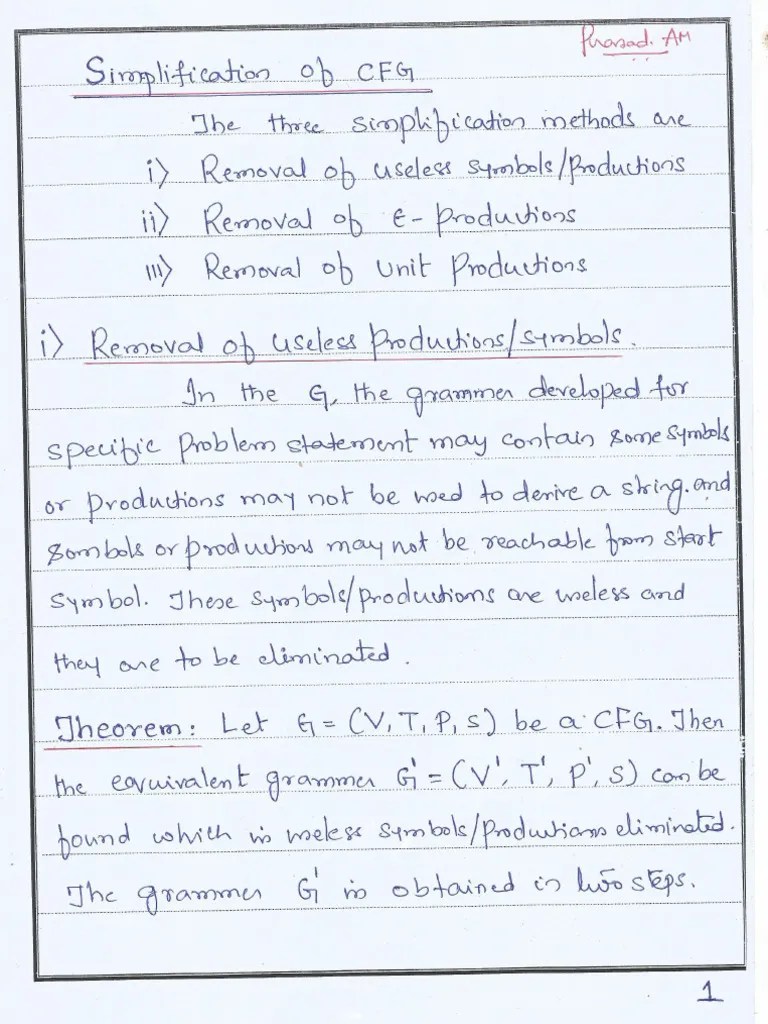 Prasad. AM
Simplification of CFG
The three simplification methods are
i) Removal of useless symbols/productions
ii) Removal of ε- productions
iii) Removal of Unit Productions
i) Removal of useless productions/symbols.
In the G, the grammer developed for
specific problem statement may contain some symbols
or productions may not be used to derive a string. and
sombols or productions may not be reachable from start
symbol. These symbols/productions are useless and
they are to be eliminated.
Theorem: Let G = (V, T, P, S) be a CFG. Then
the equivalent grammer G' = (V', T', P', S) can be
found which is useless symbols/productions eliminated.
The grammer G' is obtained in two steps.
1